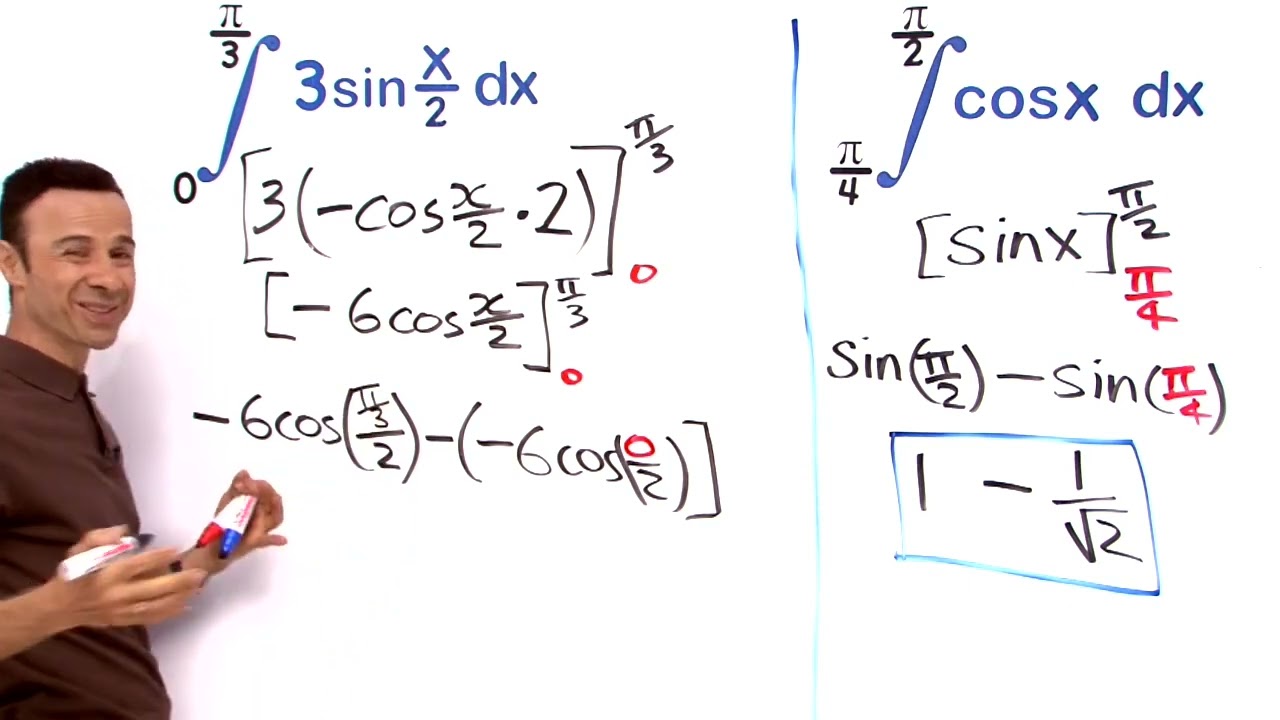 ∫₀^(π/3) 3sin x/2 dx
[3(-cos x/2 · 2)]₀^(π/3)
[-6cos x/2]₀^(π/3)
-6cos((π/3)/2) - (-6cos(0/2)]
∫_(π/4)^(π/2) cosx dx
[sinx]_(π/4)^(π/2)
Sin(π/2) - Sin(π/4)
1 - 1/√2